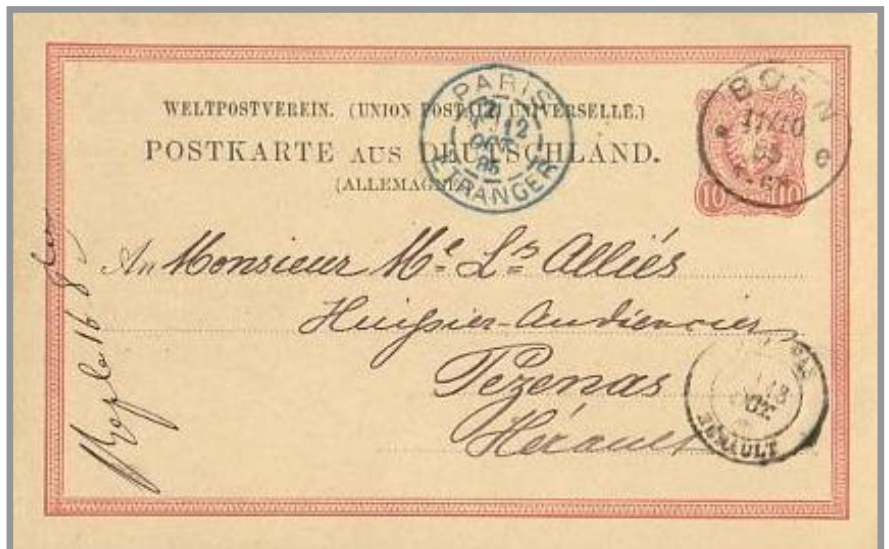 WELTPOSTVEREIN. (UNION POSTALE UNIVERSELLE.)
POSTKARTE AUS DEUTSCHLAND.
(ALLEMAGNE)
PARIS
12
OCT
85
ETRANGER
BONN
11/10
85
10 10
An Monsieur Me Ls Alliés
Huissier-Audiencier
Pézenas
Hérault
HERAULT
le 16 8bre